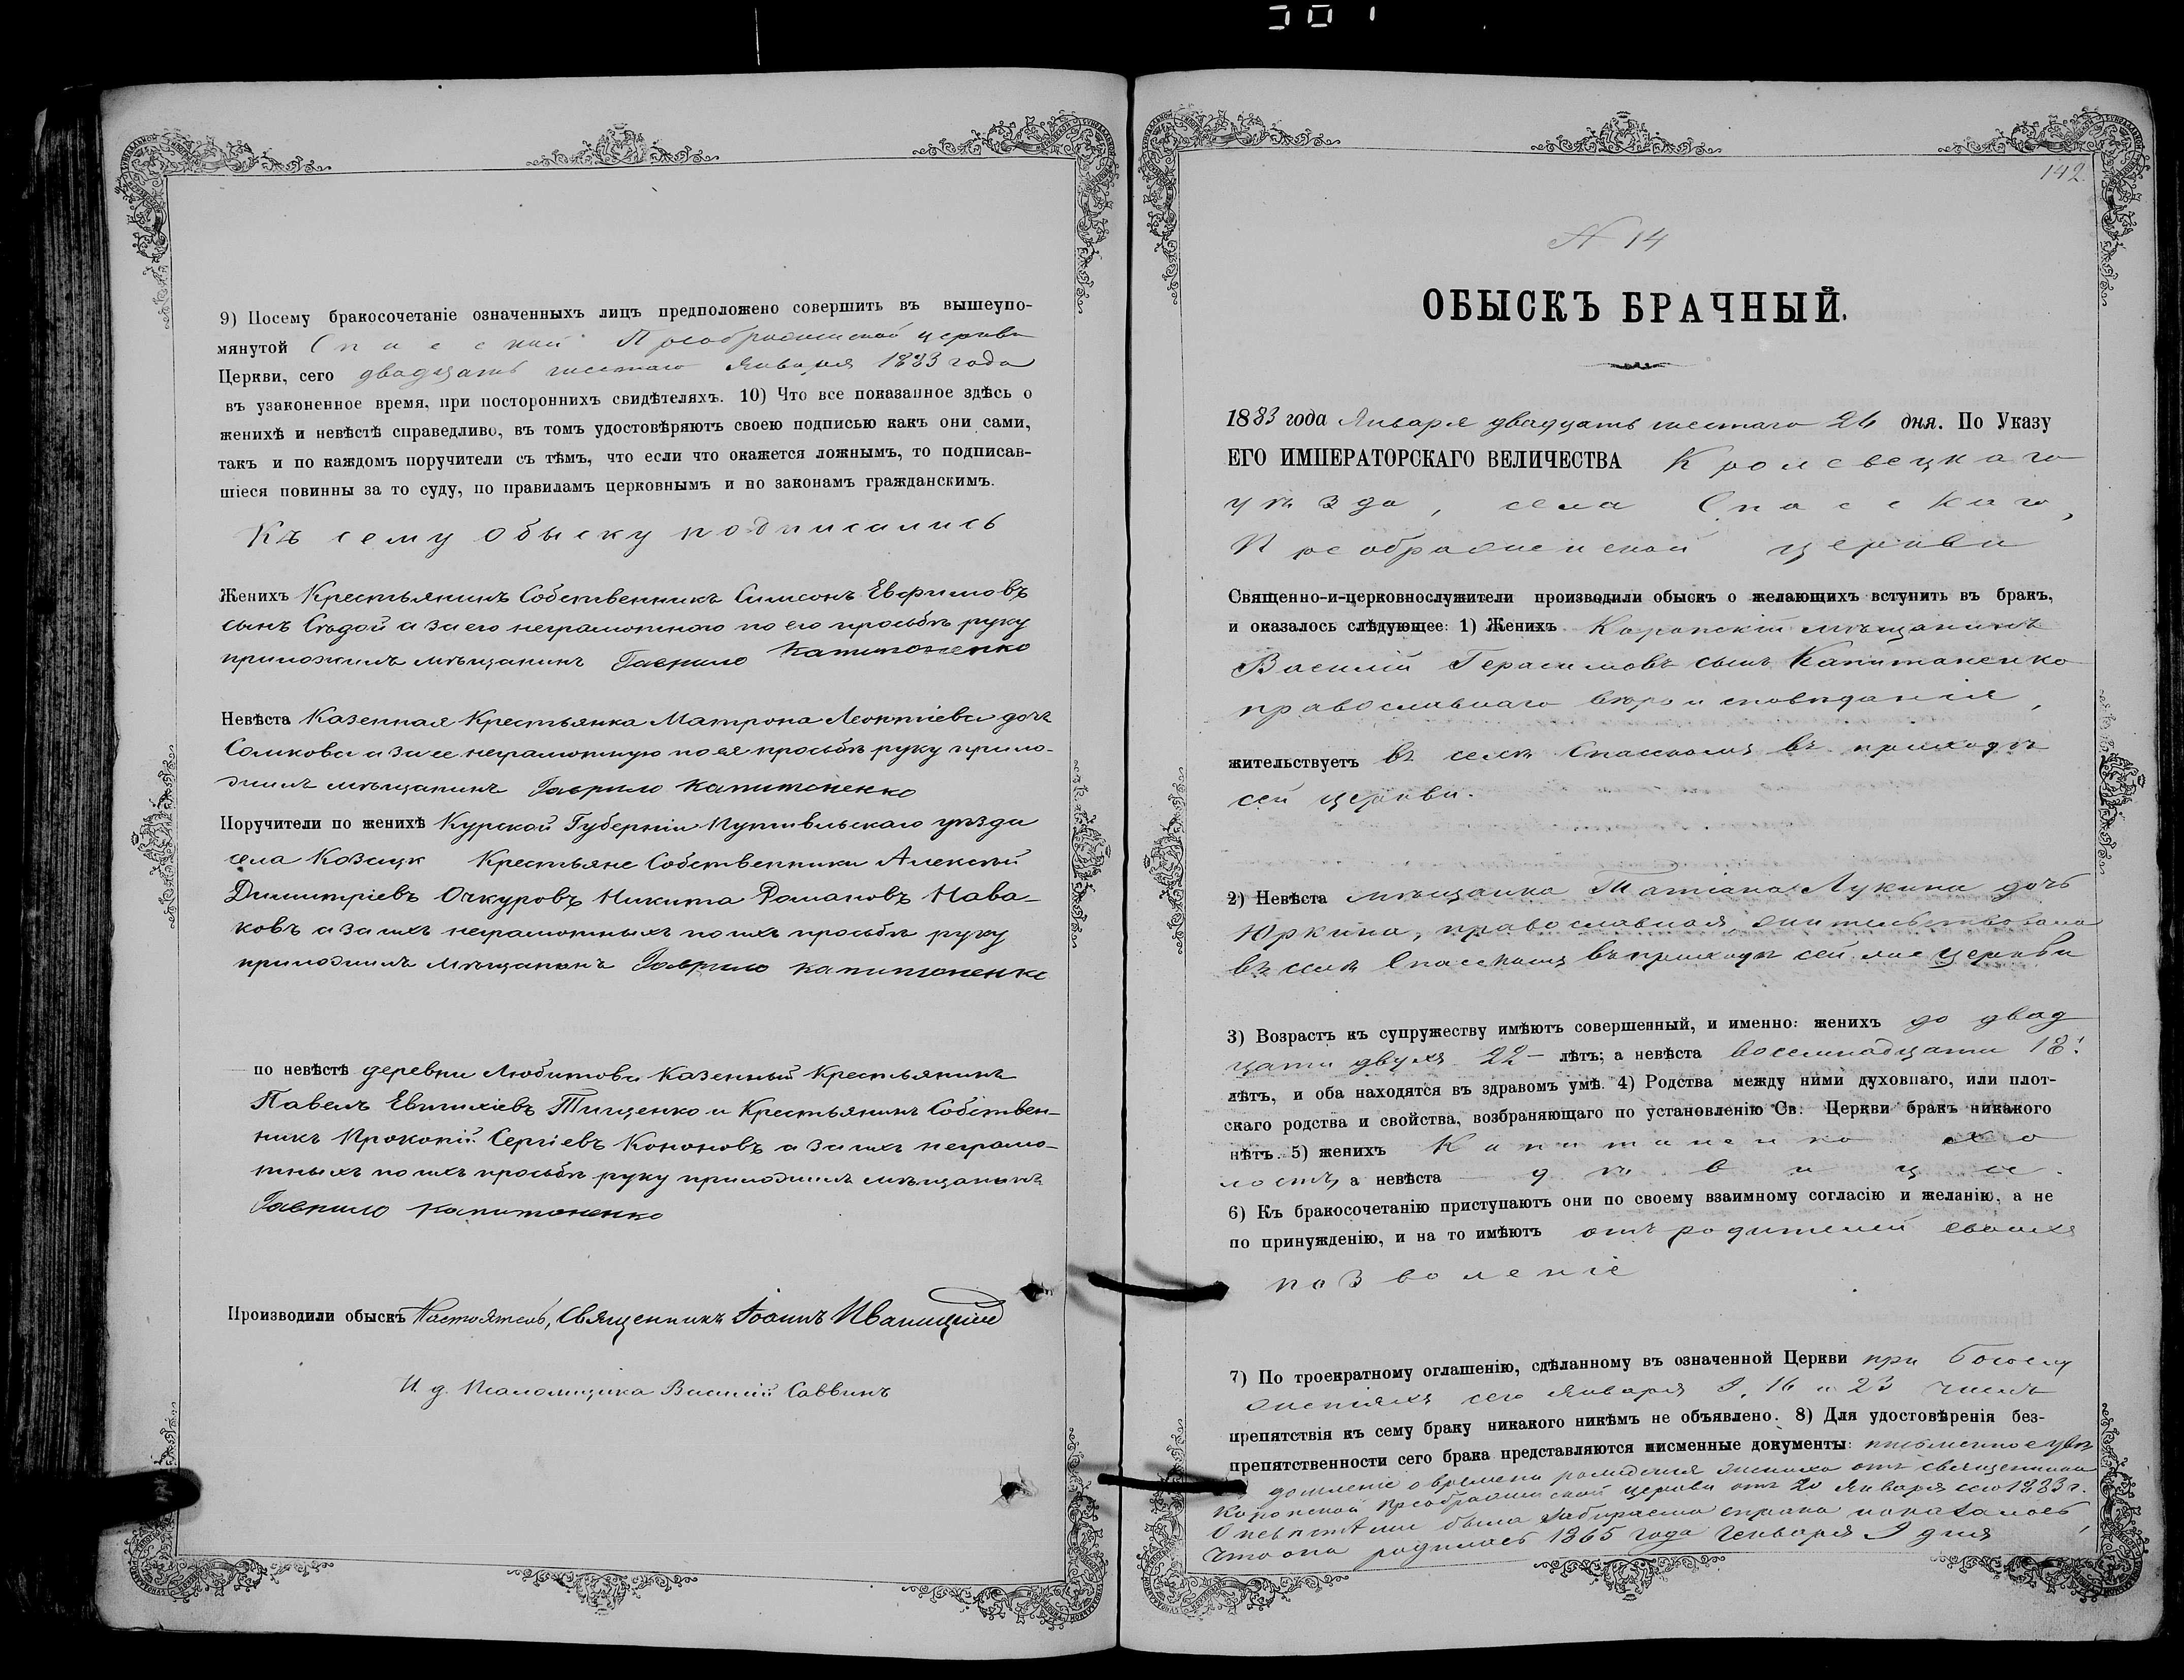 9) Посему бракосочетаніе означенныхъ лицъ предположено совершить въ вышеупо-
мянутой Спасской Преображенской церкви
Церкви, сего двадцать шестаго Января 1883 года
въ узаконенное время, при постороннихъ свидѣтеляхъ. 10) Что все показанное здѣсь о
женихѣ и невѣстѣ справедливо, въ томъ удостовѣряютъ своею подписью какъ они сами,
такъ и по каждомъ поручители съ тѣмъ, что если что окажется ложнымъ, то подписав-
шіеся повинны за то суду, по правиламъ церковнымъ и по законамъ гражданскимъ.
Къ сему обыску подписались
Женихъ Крестьянинъ Собственникъ Симеонъ Евфимовъ
сынъ Сѣдой а за его неграмотного по его прозьбѣ руку
приложилъ мѣщанинъ Гаврило Капитоненко
Невѣста Казенная Крестьянка Матрона Леонтіева дочь
Сомкова а за ее неграмотную по ея прозьбѣ руку прило-
жилъ мѣщанинъ Гаврило Капитоненко
Поручители по женихѣ Курской Губерніи Путивльскаго уѣзда
села Козацк Крестьяне Собственники Алексѣй
Димитріевъ Очкуровъ Никита Романовъ Нава-
ковъ а за ихъ неграмотныхъ по ихъ прозьбѣ руку
приложилъ мѣщанинъ Гаврило Капитоненко
по невѣстѣ деревни Любитова Казенный Крестьянинъ
Павелъ Евтихіевъ Тищенко и Крестьянинъ Собствен-
никъ Прокопій Сергіевъ Кононовъ а за ихъ неграмо-
тныхъ по ихъ прозьбѣ руку приложилъ мѣщанинъ
Гаврило Капитоненко
Производили обыскъ Настоятель, Священникъ Іоаннъ Иваницкій
И. д. Псаломщика Василій Саввинъ
142.
N 14
ОБЫСКЪ БРАЧНЫЙ.
1883 года Января двадцать шестаго 26 дня. По Указу
ЕГО ИМПЕРАТОРСКАГО ВЕЛИЧЕСТВА Кролевецкаго
уѣзда, села Спасскаго,
Преображенской церкви
Священно-и-церковнослужители производили обыскъ о желающихъ вступить въ бракъ,
и оказалось слѣдующее: 1) Женихъ Коропскій мѣщанинъ
Василій Герасимовъ сынъ Капитаненко
православнаго вѣроисповѣданія,
жительствуетъ въ селѣ Спасскомъ въ приходѣ
сей церкви.
2) Невѣста мѣщанка Татіана Лукина дочь
Юркина, православная, жительствовала
въ селѣ Спасскомъ въ приходѣ сей же церкви
3) Возрастъ къ супружеству имѣютъ совершенный, и именно: женихъ до двад
цати двухъ 22 – лѣтъ; а невѣста восемнадцати 18.
лѣтъ, и оба находятся въ здравомъ умѣ. 4) Родства между ними духовнаго, или плот-
скаго родства и свойства, возбраняющаго по установленію Св. Церкви бракъ никакого
нѣтъ. 5) женихъ Капитаненко хо
лостъ, а невѣста дѣвица.
6) Къ бракосочетанію приступаютъ они по своему взаимному согласію и желанію, а не
по принужденію, и на то имѣютъ отъ родителей своихъ
позволеніе
7) По троекратному оглашенію, сдѣланному въ означенной Церкви при богослу
женіяхъ сего Января 9, 16 и 23 числъ
препятствія къ сему браку никакого никѣмъ не объявлено. 8) Для удостовѣренія без-
препятственности сего брака представляются писменные документы: письменное увѣ
домленіе о времени рожденія жениха отъ священника
Коропской Преображенской церкви отъ 20 Января сего 1883 г.
О невѣстѣ была забираема справка показалось,
что она родилась 1865 года Генваря 9 дня